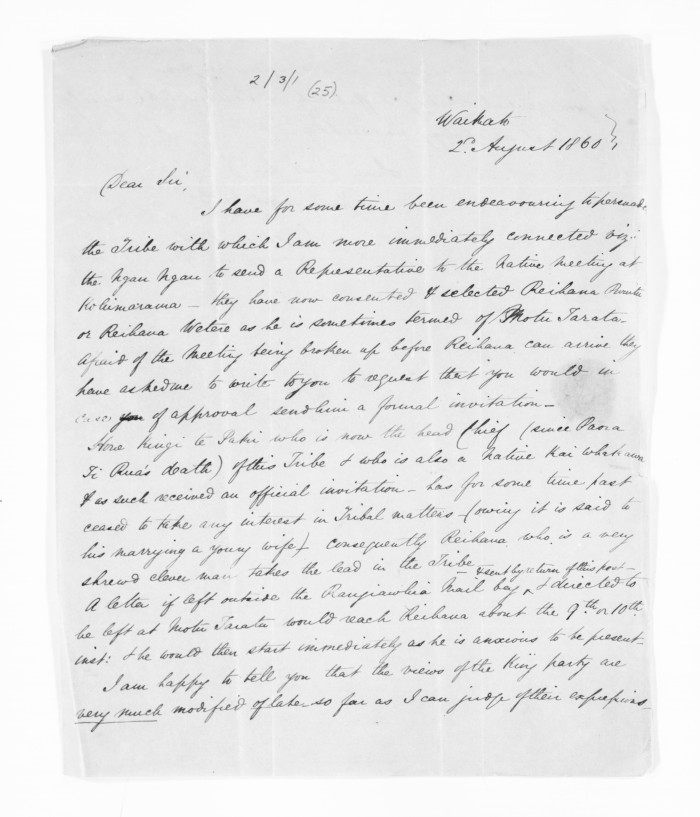 2/3/1 (25).
Waikato
2d. August 1860
Dear Sir,
I have for some time been endeavouring to persuade
the Tribe with which I am more immediately connected viz:
the Ngau Ngau to send a Representative to the Native Meeting at
Kohimarama – they have now consented & selected Reihana
or Reihana Wetere as he is sometimes termed of Motu Tarata.
Afraid of the Meeting being broken up before Reihana can arrive they
have asked me to write to you to request that you would in
case you of approval send him a formal invitation –
Hone Kingi te Patu who is now the head Chief (since Paora
Te Rua's death) of this Tribe & who is also a Native Kai whakawa
& as such received an official invitation – has for some time past
ceased to take any interest in Tribal matters – (owing it is said to
his marrying a young wife) – consequently Reihana who is a very
shrewd clever man takes the lead in the Tribe –
A letter if left outside the Rangiawhia Mail bag – & sent by return of this post – & directed to
be left at Motu Tarata would reach Reihana about the 9th or 10th.
inst: & he would then start immediately as he is anxious to be present –
I am happy to tell you that the views of the King party are
very much modified of late so far as I can judge of their expressions